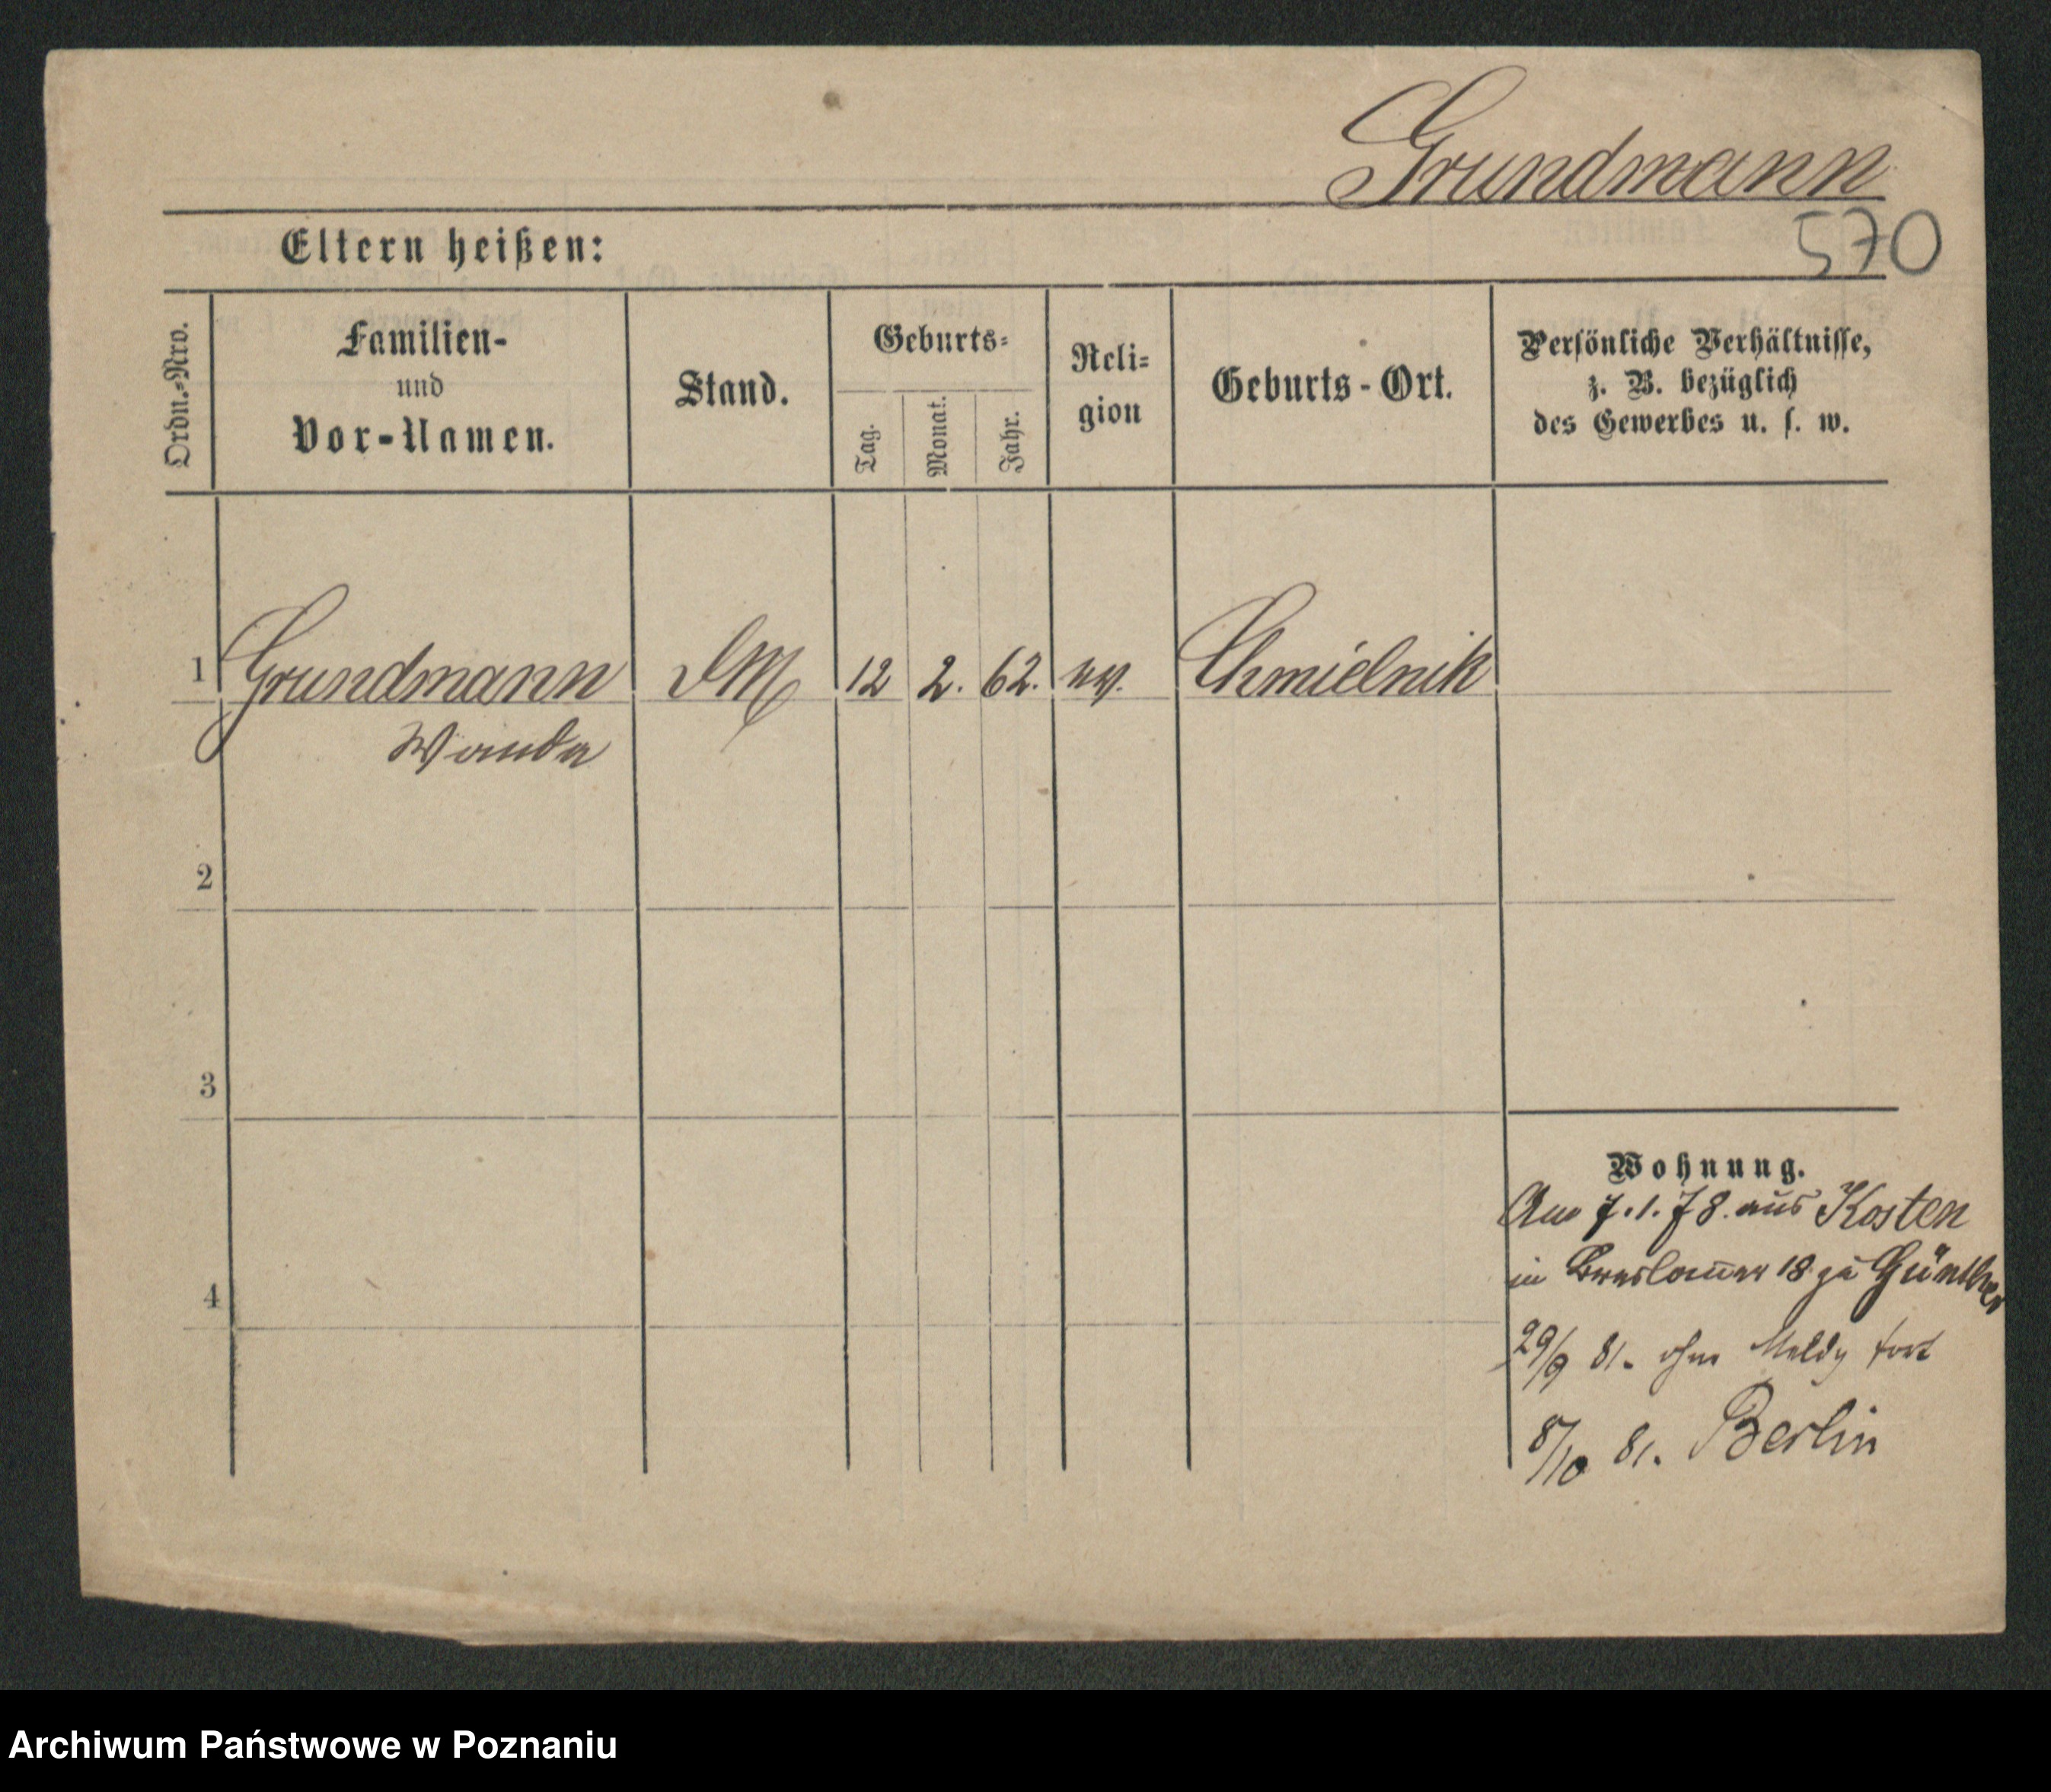 Grundmann
570
Eltern heißen:
Ordn.-Nro.
Familien-
und
Vor-Namen.
Stand.
Geburts-
Tag.
Monat.
Jahr.
Reli-
gion
Geburts-Ort.
Persönliche Verhältnisse,
z. B. bezüglich
des Gewerbes u. s. w.
1 Grundmann 12 2. 62. Chmielnik
Wanda
2
3
4
Wohnung.
Am 7.1.78. aus Kosten
in Breslauer 18 zu Günther
29/9 81. ohne Meldg fort
8/10 81. Berlin
Archiwum Państwowe w Poznaniu